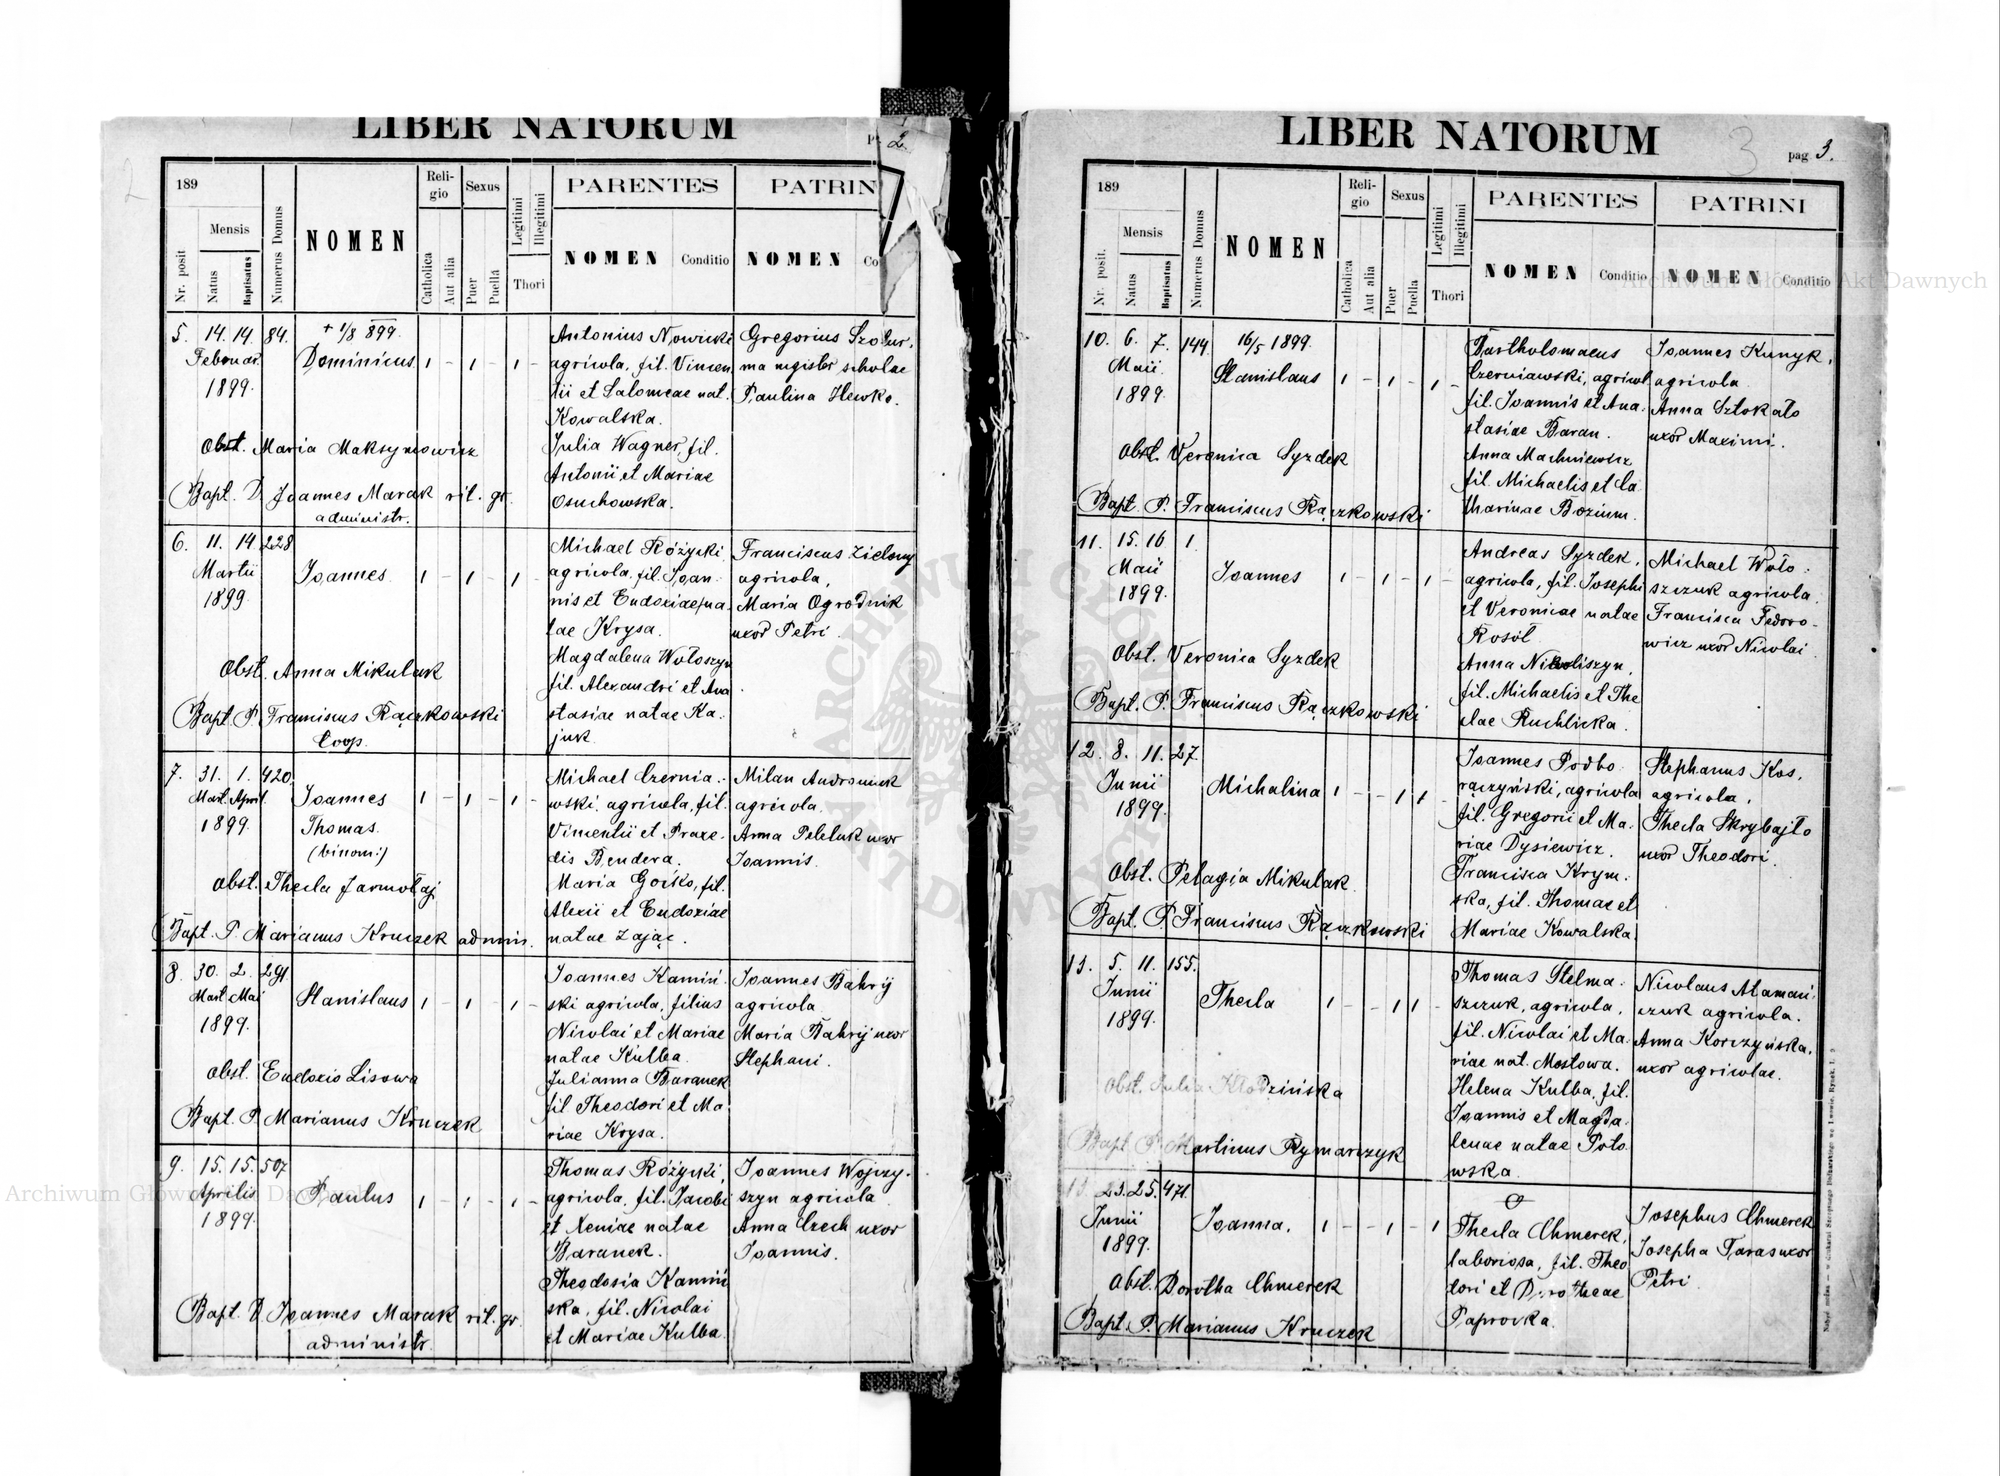 LIBER NATORUM
2
189
Nr. posit
Mensis
Natus
Baptisatus
Numerus Domus
NOMEN
Religio
Catholica
Aut alia
Sexus
Puer
Puella
Legitimi
Illegitimi
Thori
PARENTES
NOMEN
Conditio
PATRIN
NOMEN
Co
5. 14. 14. 84. + 1/8 899.
Februar. Dominicus 1 - 1 - 1 -
1899.
Antonius Nowicki
agricola, fil. Vincen
tii et Salomeae nat.
Kowalska.
Julia Wagner, fil.
Antonii et Mariae
Osuchowska.
Gregorius Szobur.
ma magister scholae
Paulina Hewko.
Obst. Maria Maksymowicz
Bapt. D. Joannes Marak rit. gr.
administr.
6. 11. 14. 228
Martii Joannes 1 - 1 - 1 -
1899.
Michael Różycki
agricola, fil. Joan
nis et Eudoxiae, na
tae Krysa.
Magdalena Wołoszyn
fil. Alexandri et Ana
stasiae natae Ka.
juk.
Franciscus Zielony
agricola,
Maria Ogrodnik
uxor Petri.
Obst. Anna Mikulak
Bapt. P. Franciscus Rączkowski
Coop.
7. 31. 1. 420.
Mart. April. Joannes 1 - 1 - 1 -
1899. Thomas.
(binom:)
Michael Czernia.
wski, agricola, fil.
Vincentii et Praxe.
dis Bendera.
Maria Goćko, fil.
Alexii et Eudoxiae
natae Zając.
Milan
agricola.
Anna Peletuk uxor
Joannis.
Obst. Thecla Jarmołaj
Bapt. P. Marianus Kruczek admin.
8. 30. 2. 291
Mart. Mai Stanislaus 1 - 1 - 1 -
1899.
Joannes Kamiń
ski agricola, filius
Nicolai et Mariae
natae Kulba.
Julianna Baranek
fil Theodori et Ma
riae Krysa.
Joannes Bahrij
agricola
Maria Bahrij uxor
Stephani.
Obst. Eudoxia Lisowa
Bapt. P. Marianus Kruczek
9. 15. 15. 507
Aprilis Paulus 1 - 1 - 1 -
1899.
Thomas Różycki,
agricola, fil. Jacobi
et Xeniae natae
Baranek.
Theodosia Kamiń
ska, fil. Nicolai
et Mariae Kulba.
Joannes Wojczy.
szyn agricola
Anna Czech uxor
Joannis.
Bapt. D. Joannes Marak rit. gr.
administr.
LIBER NATORUM
3
pag 3.
189
Nr. posit.
Mensis
Natus
Baptisatus
Numerus Domus
NOMEN
Religio
Catholica
Aut alia
Sexus
Puer
Puella
Legitimi
Illegitimi
Thori
PARENTES
NOMEN
Conditio
PATRINI
NOMEN
Conditio
10. 6. 7. 144. 16/5 1899.
Maii Stanislaus 1 - 1 - 1 -
1899.
Bartholomaeus
Czerniawski, agricol
fil. Joannis et Ana.
stasiae Baran.
Anna Machniewicz
fil. Michaelis et Ca
tharinae Bozium.
Joannes Kunyk,
agricola
Anna Sztokało
uxor Maximi.
Obst. Veronica Syzdek
Bapt. P. Franciscus Rączkowski
11. 15. 16 1.
Maii Joannes 1 - 1 - 1 -
1899.
Andreas Syzdek,
agricola, fil. Josephi
et Veronicae natae
Rosół
Anna
fil. Michaelis et The
clae Ruchlicka.
Michael Woło.
szczuk agricola.
Francisca Fedoro-
wicz uxor Nicolai.
Obst. Veronica Syzdek
Bapt. P. Franciscus Rączkowski
12. 8. 11. 27.
Junii Michalina 1 - - 1 1 -
1899.
Joannes Podho
rączyński, agricola
fil. Gregorii et Ma.
riae Dysiewicz.
Francisca Krym.
ska, fil. Thomae et
Mariae Kowalska.
Stephanus Kos,
agricola,
Thecla Skrybajło
uxor Theodori.
Obst. Pelagia Mikulak
Bapt. P. Franciscus Rączkowski
13. 5. 11. 155.
Junii Thecla 1 - - 1 1 -
1899.
Thomas Stelma.
szczuk, agricola,
fil. Nicolai et Ma.
riae nat. Mostowa.
Helena Kulba, fil.
Joannis et Magda.
lenae natae Poto.
wska.
Nicolaus Ataman.
czuk agricola.
Anna Korczyńska,
uxor agricolae.
Obst. Julia Kłodzińska
Bapt. P. Martinus Rymarczyk
13. 23. 25. 471.
Junii Joanna. 1 - - 1 - 1
1899.
Thecla Chmerek,
laboriosa, fil. Theo
dori et Dorotheae
Paprocka.
Josephus Chmerek
Josepha Taras uxor
Petri.
Obst. Dorotha Chmerek
Bapt. P. Marianus Kruczek
Archiwum Główne Akt Dawnych
Archiwum Główne Akt Dawnych
ARCHIWUM GŁÓWNE AKT DAWNYCH